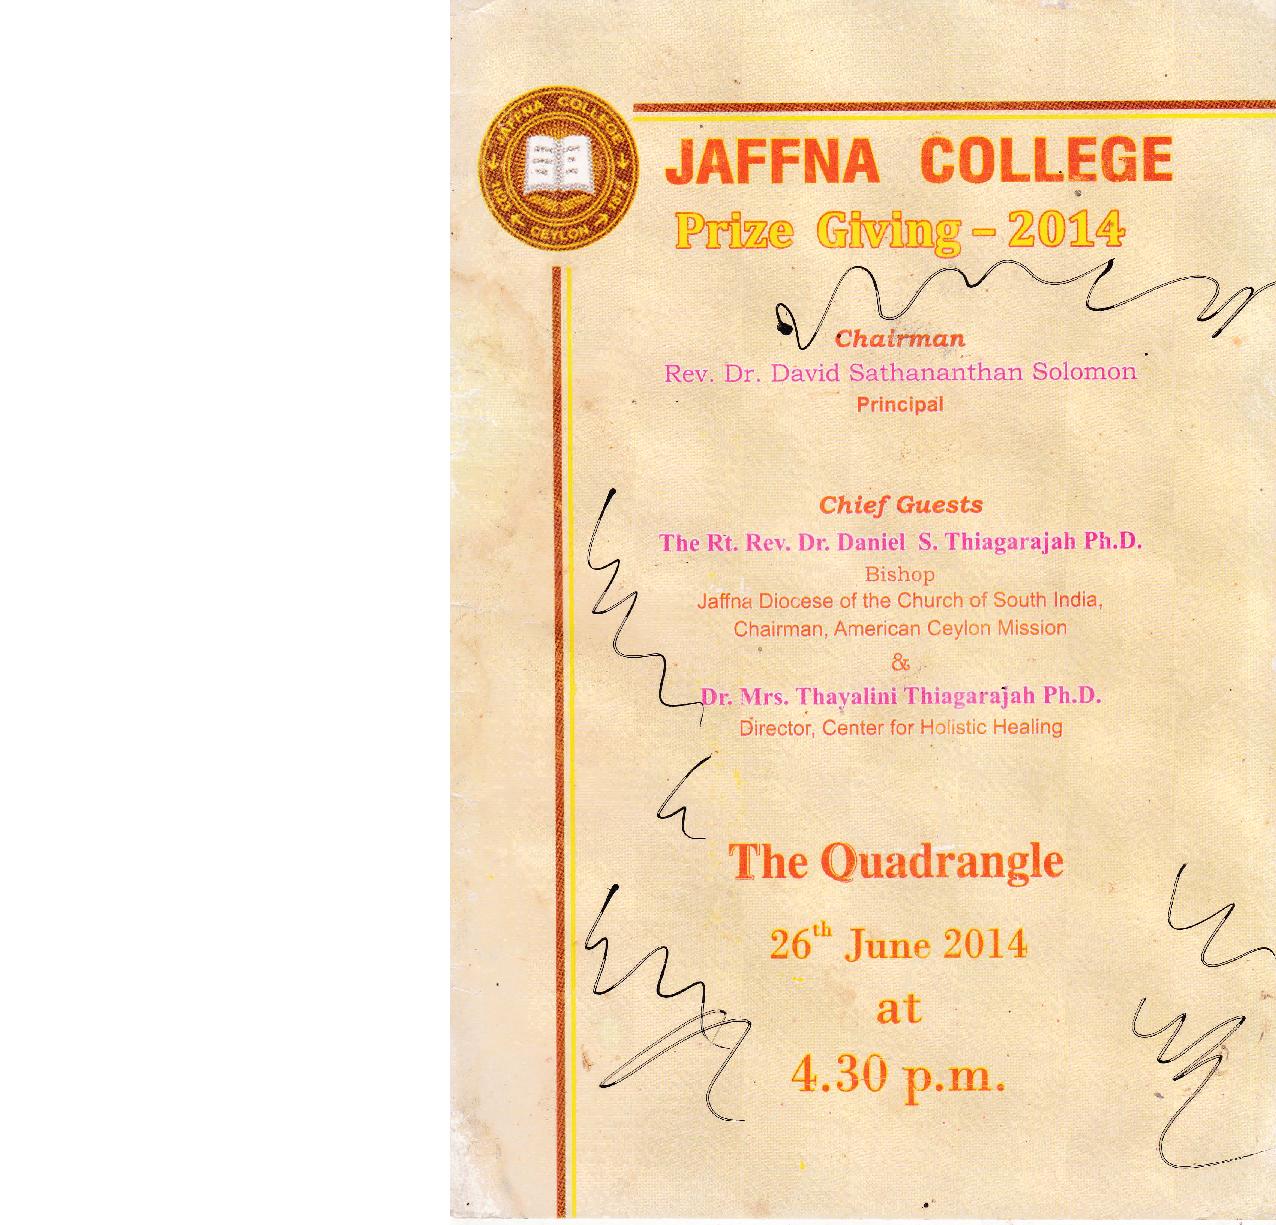 JAFFNA COLLEGE
CEYLON
JAFFNA COLLEGE
Prize Giving - 2014
Chairman
Rev. Dr. David Sathananthan Solomon
Principal
Chief Guests
The Rt. Rev. Dr. Daniel S. Thiagarajah Ph.D.
Bishop
Jaffna Diocese of the Church of South India,
Chairman, American Ceylon Mission
&
Dr. Mrs. Thayalini Thiagarajah Ph.D.
Director, Center for Holistic Healing
The Quadrangle
26th June 2014
at
4.30 p.m.